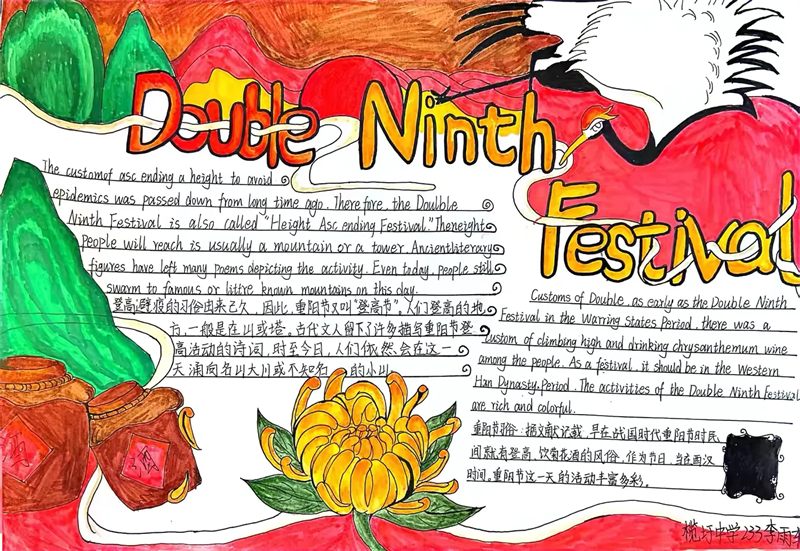 Double Ninth
Festival
The custom of asc ending a height to avoid
epidemics was passed down from long time ago. There fore, the Doulble
Ninth Festival is also called "Height Asc ending Festival." Theneight
people will reach is usually a mountain or a tower Ancientliterary
figures have left many poems depicting the activity. Even today, people still
swarm to famous or littre known mountains on this day.
登高避疫的习俗由来已久，因此，重阳节又叫"登高节"。人们登高的地
方，一般是在山或塔。古代文人留下了许多描写重阳节登
高活动的诗词，时至今日，人们依然会在这一
天涌向名山大川或不知名的小山
Customs of Double, as early as the Double Ninth
Festival in the Warring States Period, there was a
custom of climbing high and drinking chrysanthemum wine
among the people. As a festival, it should be in the Western
Han Dynasty.Period. The activities of the Double Ninth Festival
are rich and colorful.
重阳节习俗：据文献记载，早在战国时代重阳节时民
间就有登高、饮菊花酒的风俗，作为节日，当在西汉
时间。重阳节这一天的活动丰富多彩。
酒
酒
榄圩中学233李雨